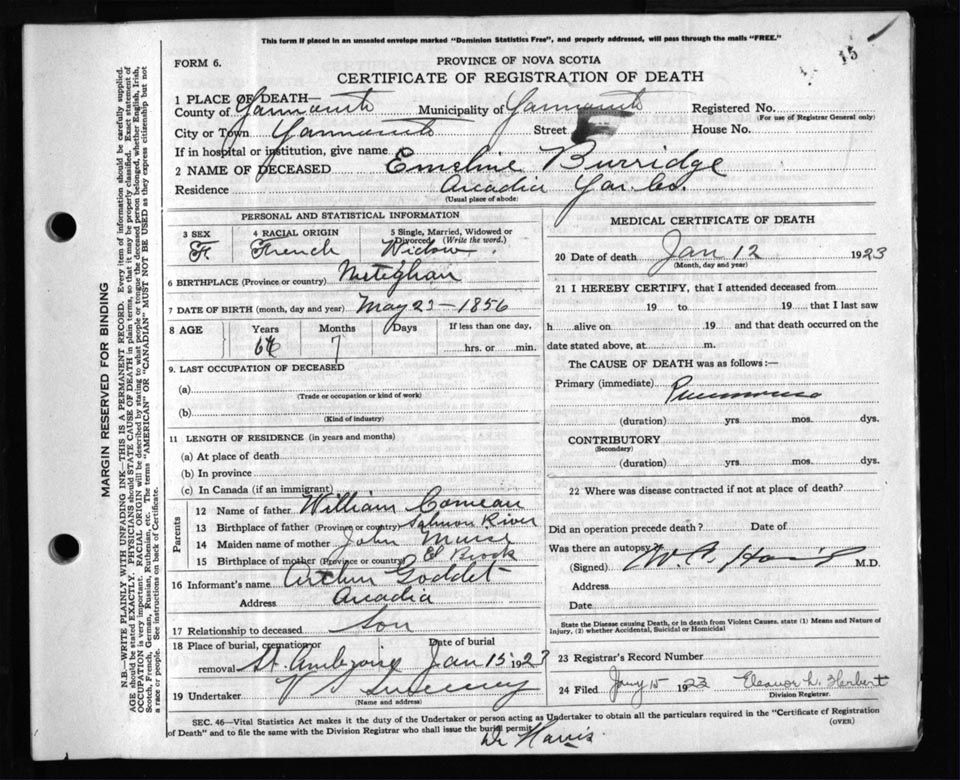 This form if placed in an unsealed envelope marked "Dominion Statistics Free", and properly addressed, will pass through the mails "FREE."
15
FORM 6.
PROVINCE OF NOVA SCOTIA
CERTIFICATE OF REGISTRATION OF DEATH
1 PLACE OF DEATH—
County of Yarmouth Municipality of Yarmouth Registered No.
(For use of Registrar General only)
City or Town Yarmouth Street House No.
If in hospital or institution, give name
2 NAME OF DECEASED Emeline Burridge
Residence Arcadia Yar. Co.
(Usual place of abode)
PERSONAL AND STATISTICAL INFORMATION
3 SEX F. 4 RACIAL ORIGIN French 5 Single, Married, Widowed or Divorced. (Write the word.) Widow.
6 BIRTHPLACE (Province or country) Meteghan
7 DATE OF BIRTH (month, day and year) May 23-1856
8 AGE Years Months Days If less than one day,
7 hrs. or min.
9. LAST OCCUPATION OF DECEASED
(a)
(Trade or occupation or kind of work)
(b)
(Kind of industry)
11 LENGTH OF RESIDENCE (in years and months)
(a) At place of death
(b) In province
(c) In Canada (if an immigrant)
Parents
12 Name of father William Comeau
13 Birthplace of father (Province or country) Salmon River
14 Maiden name of mother John Muise
15 Birthplace of mother (Province or country) El Brook
16 Informant's name Goddet
Address Arcadia
17 Relationship to deceased Son
18 Place of burial, cremation or removal St. Ambroise Date of burial Jan 15 1923
19 Undertaker V S Sweeney
(Name and address)
MEDICAL CERTIFICATE OF DEATH
20 Date of death Jan 12 1923
(Month, day and year)
21 I HEREBY CERTIFY, that I attended deceased from
19 to 19 that I last saw
h alive on 19 and that death occurred on the
date stated above, at m.
The CAUSE OF DEATH was as follows:—
Primary (immediate) Pneumonia
(duration) yrs. mos. dys.
CONTRIBUTORY
(Secondary)
(duration) yrs mos. dys.
22 Where was disease contracted if not at place of death?
Did an operation precede death? Date of
Was there an autopsy?
(Signed) M.D.
Address
Date
State the Disease causing Death, or in death from Violent Causes, state (1) Means and Nature of
Injury, (2) whether Accidental, Suicidal or Homicidal
23 Registrar's Record Number
24 Filed Jany 15 1923 Eleanor L. Herbert
Division Registrar.
SEC. 46—Vital Statistics Act makes it the duty of the Undertaker or person acting as Undertaker to obtain all the particulars required in the "Certificate of Registration
of Death" and to file the same with the Division Registrar who shall issue the burial permit.
(OVER)
Dr Harris.
MARGIN RESERVED FOR BINDING
N.B.—WRITE PLAINLY WITH UNFADING INK—THIS IS A PERMANENT RECORD. Every item of information should be carefully supplied.
AGE should be stated EXACTLY. PHYSICIANS should STATE CAUSE OF DEATH in plain terms, so that it may be properly classified. Exact statement of
OCCUPATION is very important. RACIAL ORIGIN will be described by stating to what people or tongue the deceased person belonged, whether English, Irish,
Scotch, French, German, Russian, Ruthenian, etc. The terms "AMERICAN" OR "CANADIAN" MUST NOT BE USED as they express citizenship but not
a race or people. See instructions on back of Certificate.